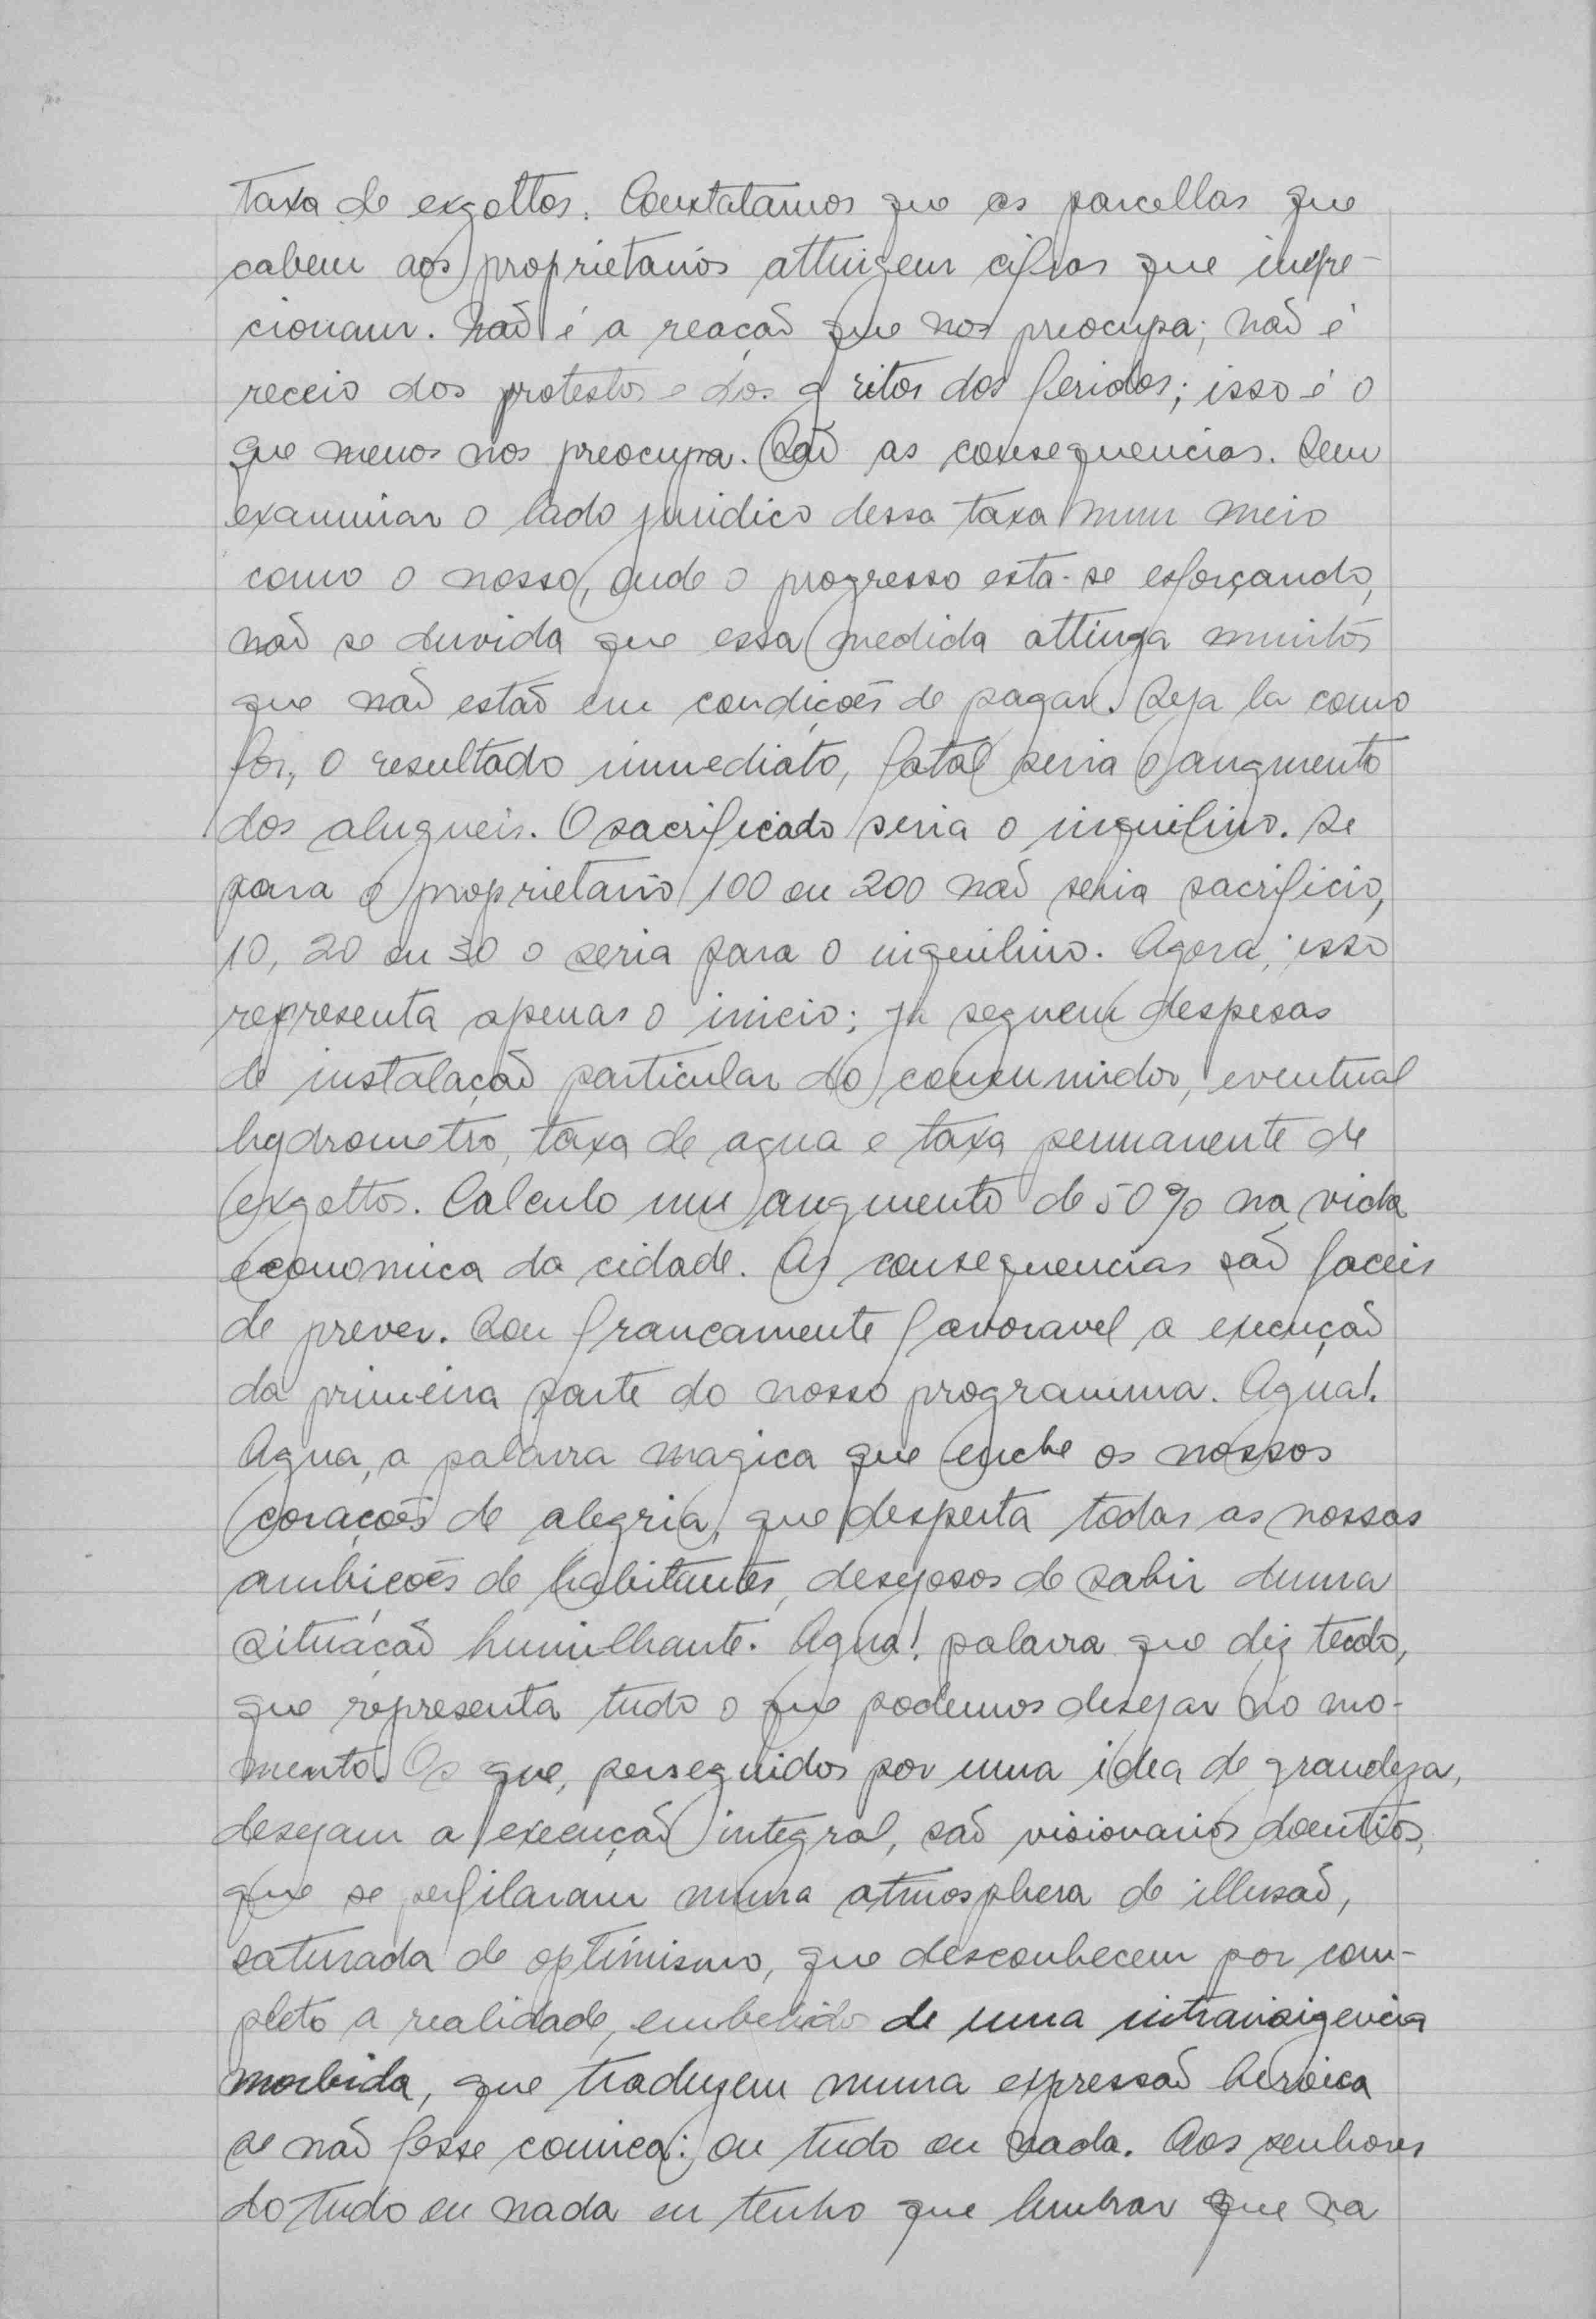 taxa de exgottos. Constatamos que as parcellas que
cabem aos proprietarios attingem cifras que impre-
cionam. Não é a reacão que nos preocupa; não é
receio dos protestos e dos gritos dos feridos; isso é o
que menos nos preocupa. São as consequencias. Sem
examinar o lado juridico dessa taxa num meio
como o nosso, onde o progresso esta-se esforçando,
não se duvida que essa medida attinga muitos
que não estão em condições de pagar. Seja la como
for, o resultado immediato, fatal seria o augmento
dos alugueis. O sacrificado seria o inquilino. Se
para o proprietario 100 ou 200 não seria sacrificio,
10, 20 ou 30 o seria para o inquilino. Agora, isso
representa apenas o inicio; ja seguem despesas
de instalação particular do consumidor, eventual
hydrometro, taxa de agua e taxa permanente de
exgottos. Calculo um augmento de 50% na vida
economica da cidade. As consequencias são faceis
de prever. Sou francamente favoravel a execução
da primeira parte do nosso programma. Agua!
Agua, a palavra magica que enche os nossos
corações de alegria, que desperta todas as nossas
ambições de habitantes, desejosos de sahir duma
situação humilhante. Agua! palavra que diz tudo,
que representa tudo o que podemos desejar no mo-
mento. Os que, perseguidos por uma idea de grandeza,
desejam a execução integral, são visionarios doentios,
que se perfilaram numa atmosphera de illusão,
saturada de optimismo, que desconhecem por com-
pleto a realidade, embebido de uma intransigencia
morbida, que traduzem numa expressão heroica
se não fosse comica: ou tudo ou nada. Aos senhores
do tudo ou nada eu tenho que lembrar que na